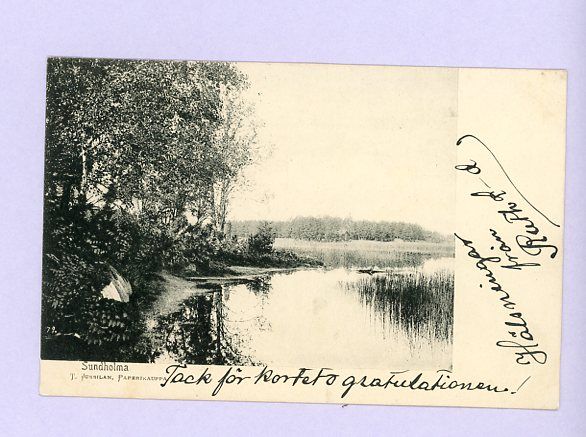 Sundholma
T. Jussilan, Paperikauppa
Tack för kortet o gratulationen!
Hälsningar
från
Ruth